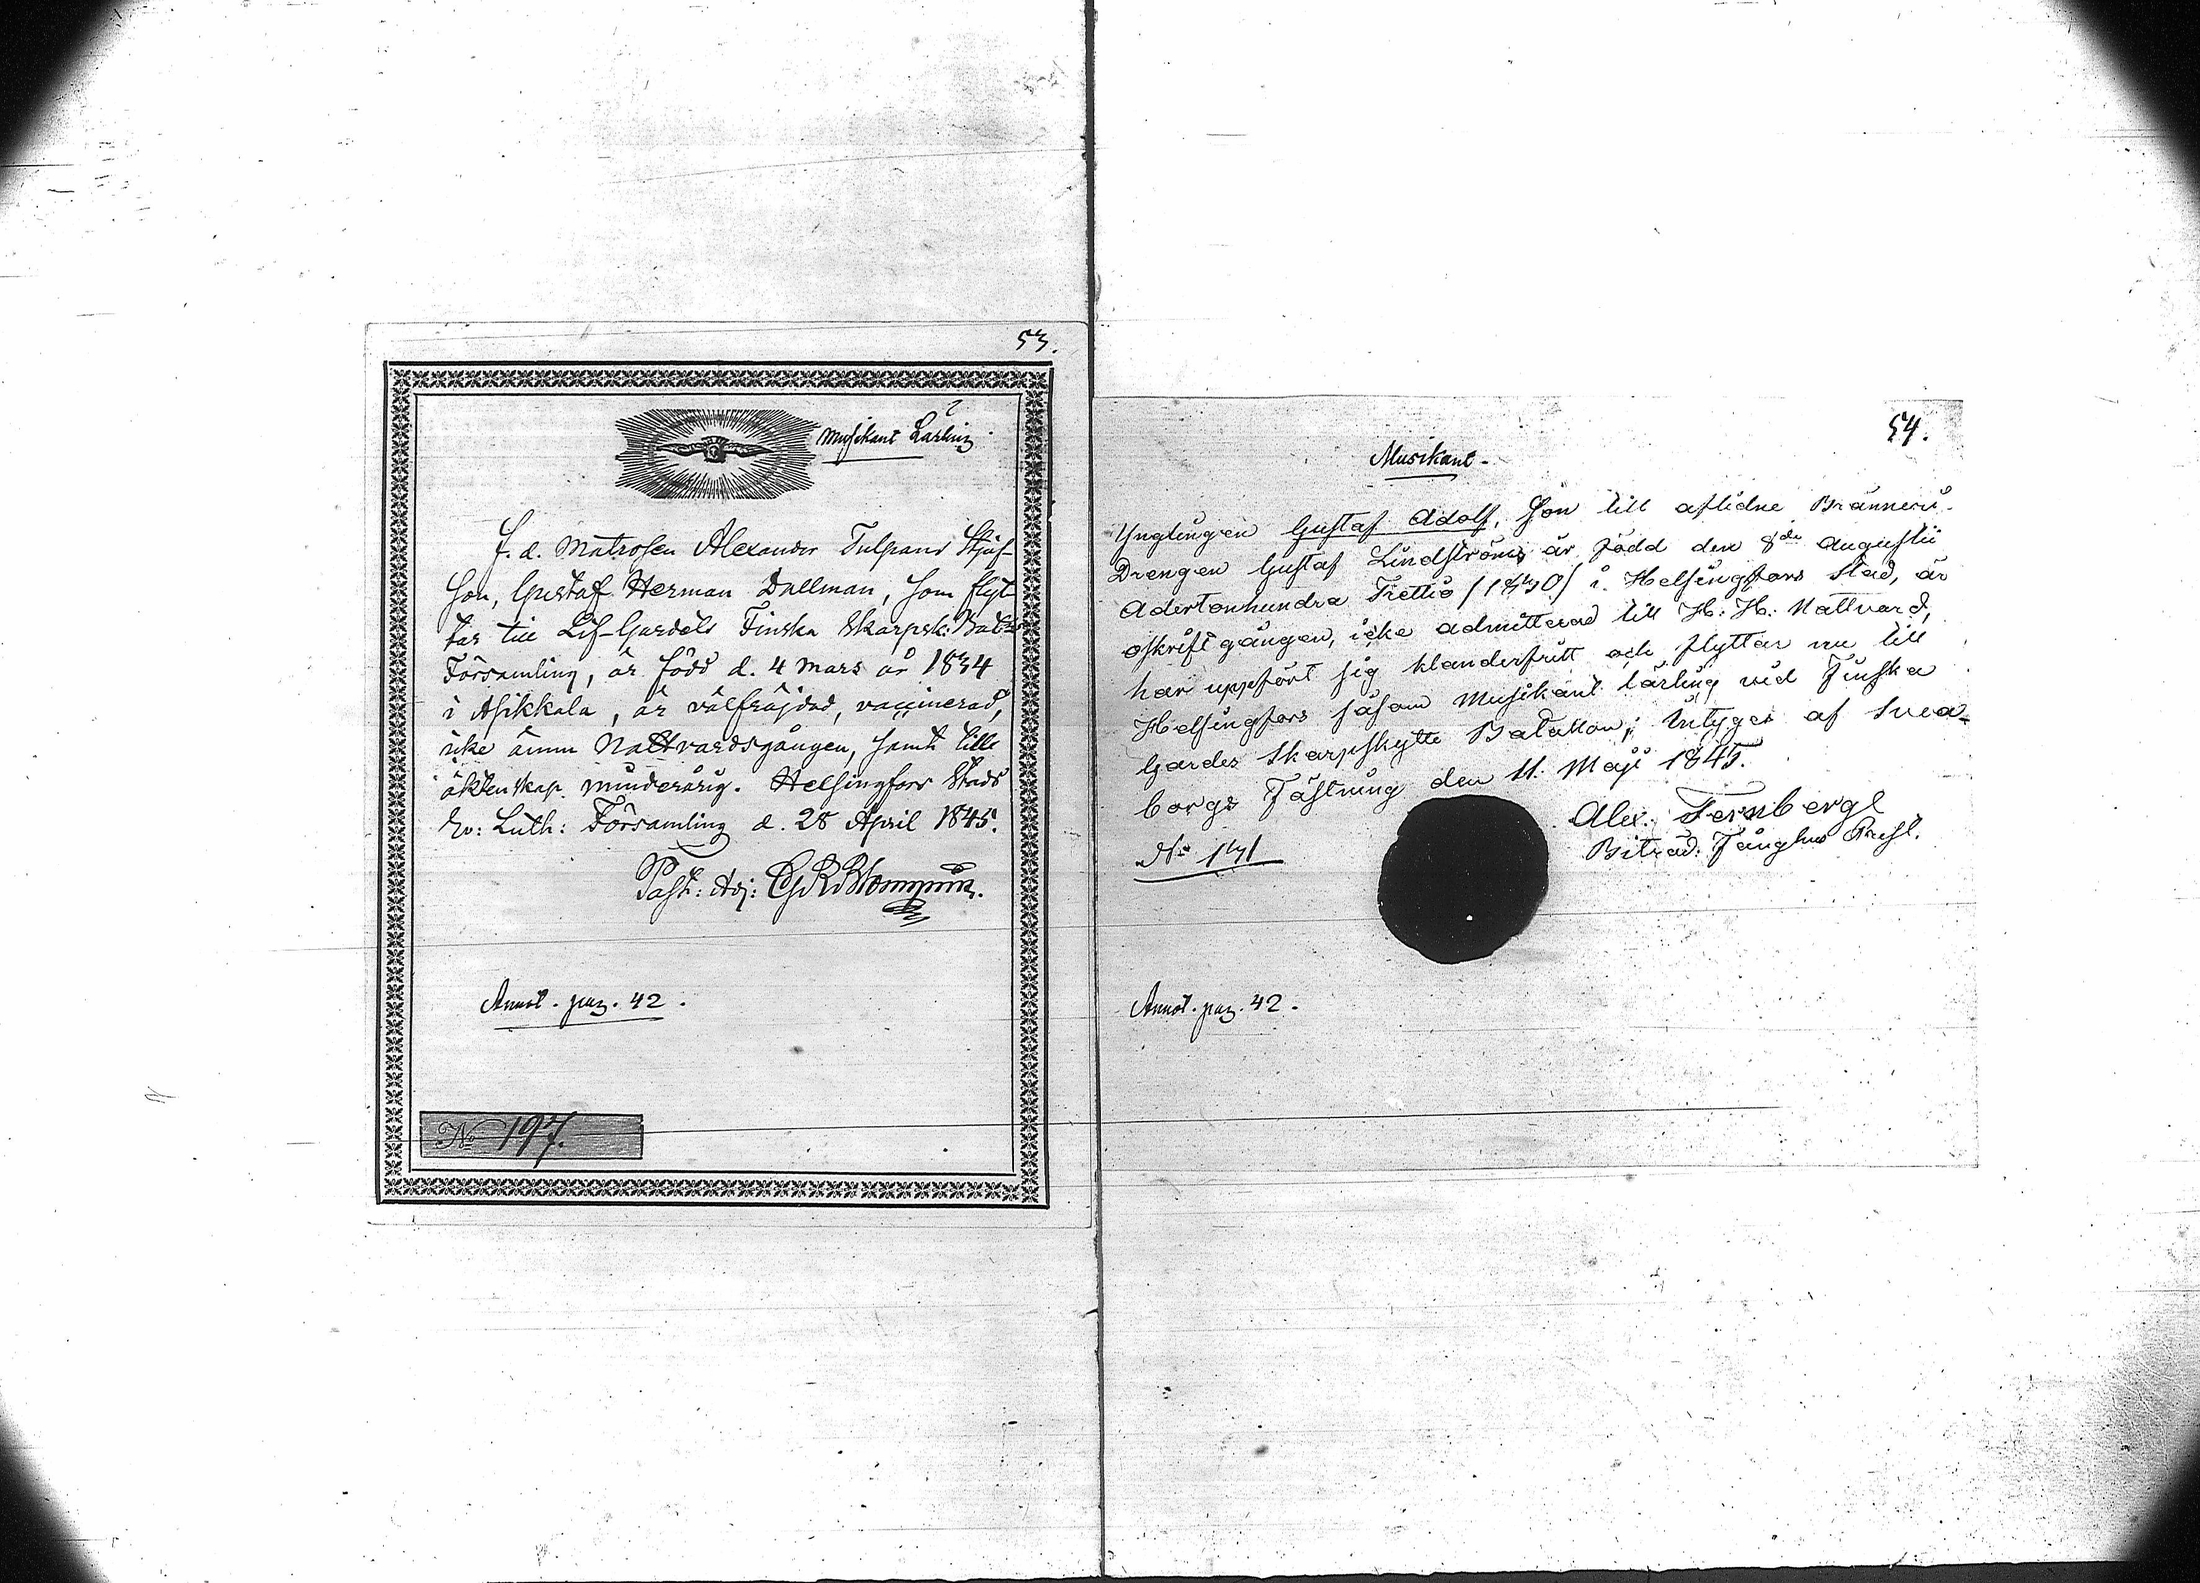 53.
Musikant Lärling
F. d. Matrosen Alexander Tulpans Styf-
son, Gustaf Herman Dallman, som flyt-
tar till Lif-Gardets Finska Skarpsk: Bat:s
Församling, är född d. 4 Mars år 1834
i Asikkala, är välfräjdad, vaccinerad,
icke ännu Nattvardsgången, samt till
äktenskap minderårig. Helsingfors Stads
Ev: Luth: Församling d. 28 April 1845.
Past: Adj:
Annot. pag. 42.
No 197.
54.
Musikant.
Ynglingen Gustaf Adolf, Son till aflidne Bränneri-
Drengen Gustaf Lindströms är född den 8de Augustii
Adertonhundra Trettio /1830/ i Helsingfors Stad, är
oskriftgången, icke admitterad till H: H: Nattvard,
har uppfört sig klanderfritt och flyttar nu till
Helsingfors såsom Musikant lärling vid Finska
Gardes Skarpskytte Bataillon; Intyges af Svea-
borgs Fästning den 11 Maji 1845.
Alex. Fernbergl
Biträd. Fånghus Prest.
No 131
Annot. pag. 42.